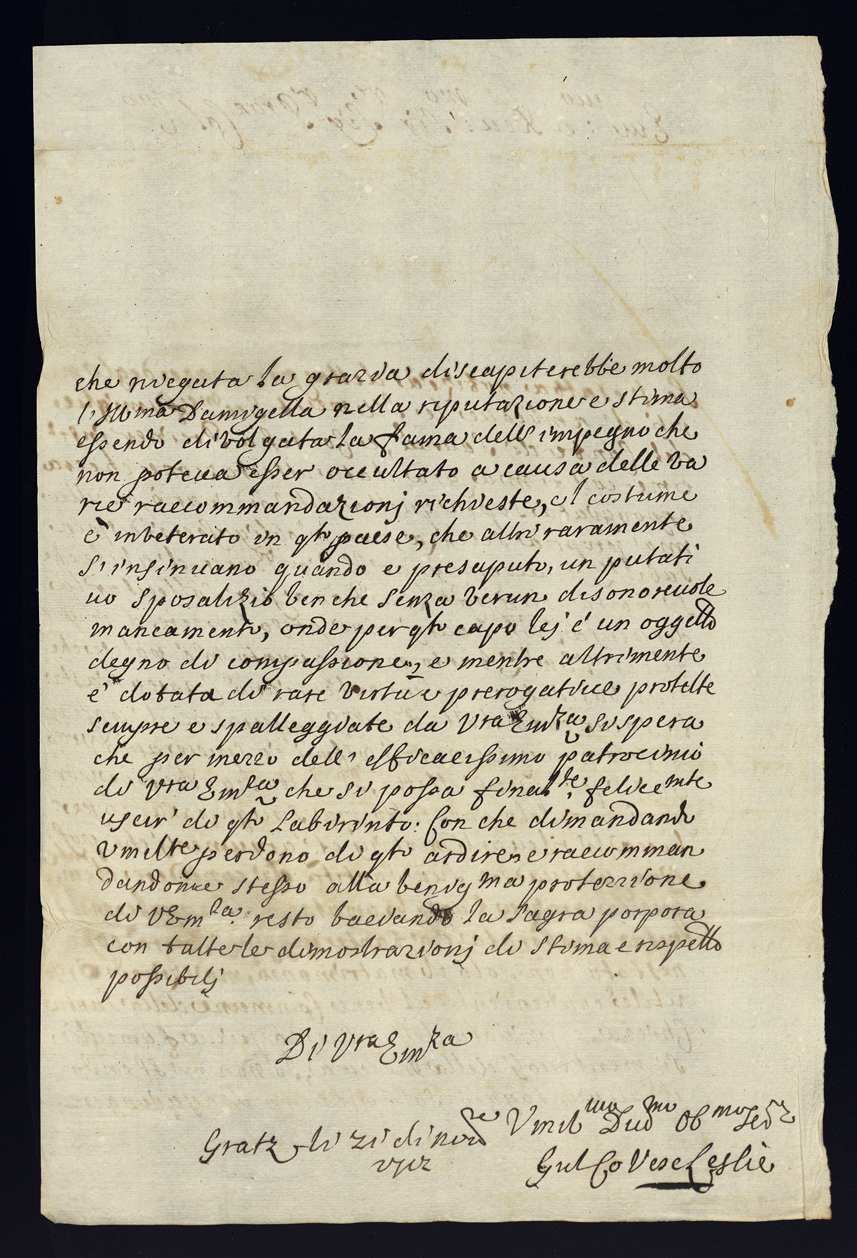 che niegata la grazia discapiterebbe molto
l'Illma Damigella nella riputazione e stima
essendo divolgata la fama dell'impegno che
non poteva esser occultato a causa delle va
rie raccommandazionj richieste, el costume
è inveterato in qto paese, che altri raramente
s'insinuano quando e presaputo, un putati
vo sposalizio benche senza verun disonorevole
mancamento, onde per qto capo lej è un oggetto
degno di compassione, e mentre altrimente
è dotata di rare virtù e prerogative protette
sempre e spalleggiate da Vra Emza si spera
che per mezzo dell'efficacissimo patrocinio
di Vra Emza che si possa finalte felicemte
uscir di qto Labirinto: Con che dimandando
Umilte perdono di qto ardire, e raccomman
dandome stesso alla benigma protezzione
di VEmza resto baciando la sagra porpora
con tutte le dimostrazionj di stima e rispetto
possibilj
Di Vra Emza
Gratz li 21 di novre
1712
Umilmo Dvd mo Obmo
Gul Co Leslie